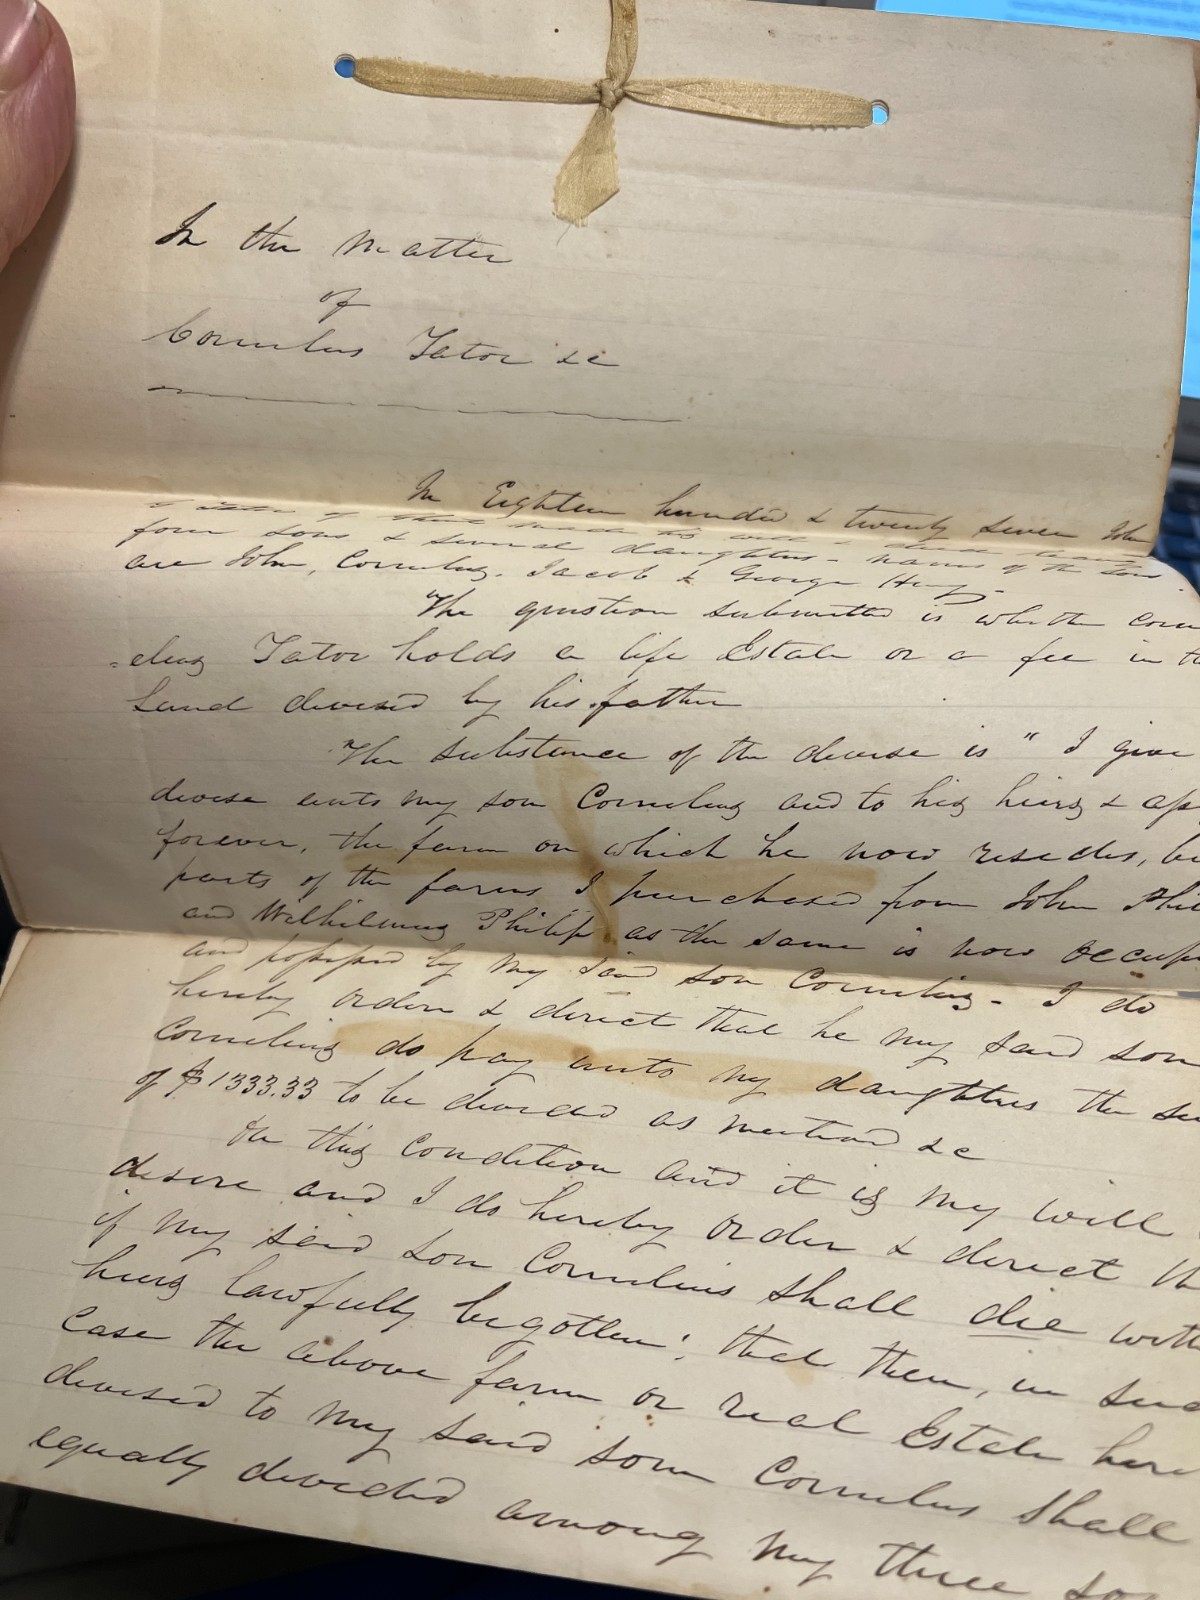 In the Matter
of
Cornelius Tator &c
In Eighteen hundred & twenty seven
four sons & several daughters - names of the sons
are John, Cornelius, Jacob & George Henry -
The question submitted is whether Corn
=elius Tator holds a life Estate or a fee in th
Land devised by his father
The substance of the devise is " I give
devise unto my son Cornelius and to his heirs & as
forever, the farm on which he now resides, be
parts of the farms I purchased from John Phil
and Wilhilmus Philip as the same is now occup
and possessed by my said son Cornelius - I do
hereby order & direct that he my said son
Cornelius do pay unto my daughters the su
of $1333.33 to be divided as mentiond &c
On this condition and it is my will
desire and I do hereby order & direct th
if my said son Cornelius shall die with
heirs lawfully begotten; that then, in suc
case the above farm or real Estate here
devised to my said son Cornelius shall
equally divided among my three so